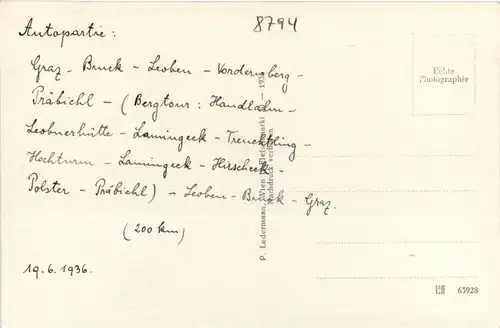 8794
Autopartie:
Graz - Bruck - Leoben - Vordernberg -
Präbichl - (Bergtour: Handlalm -
Leobnerhütte - Lamingeck - Trenchtling -
Hochturm - Lamingeck - Hirscheck -
Polster - Präbichl) - Leoben - Bruck - Graz.
(200 km)
19. 6. 1936.
Echte
Photographie
P. Ledermann, Wien I, Fleischmarkt
Nachdruck verboten
63928